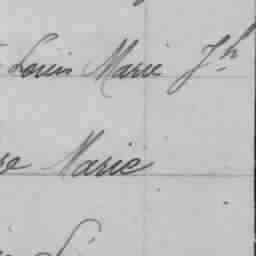 Louis Marie Jh
Marie